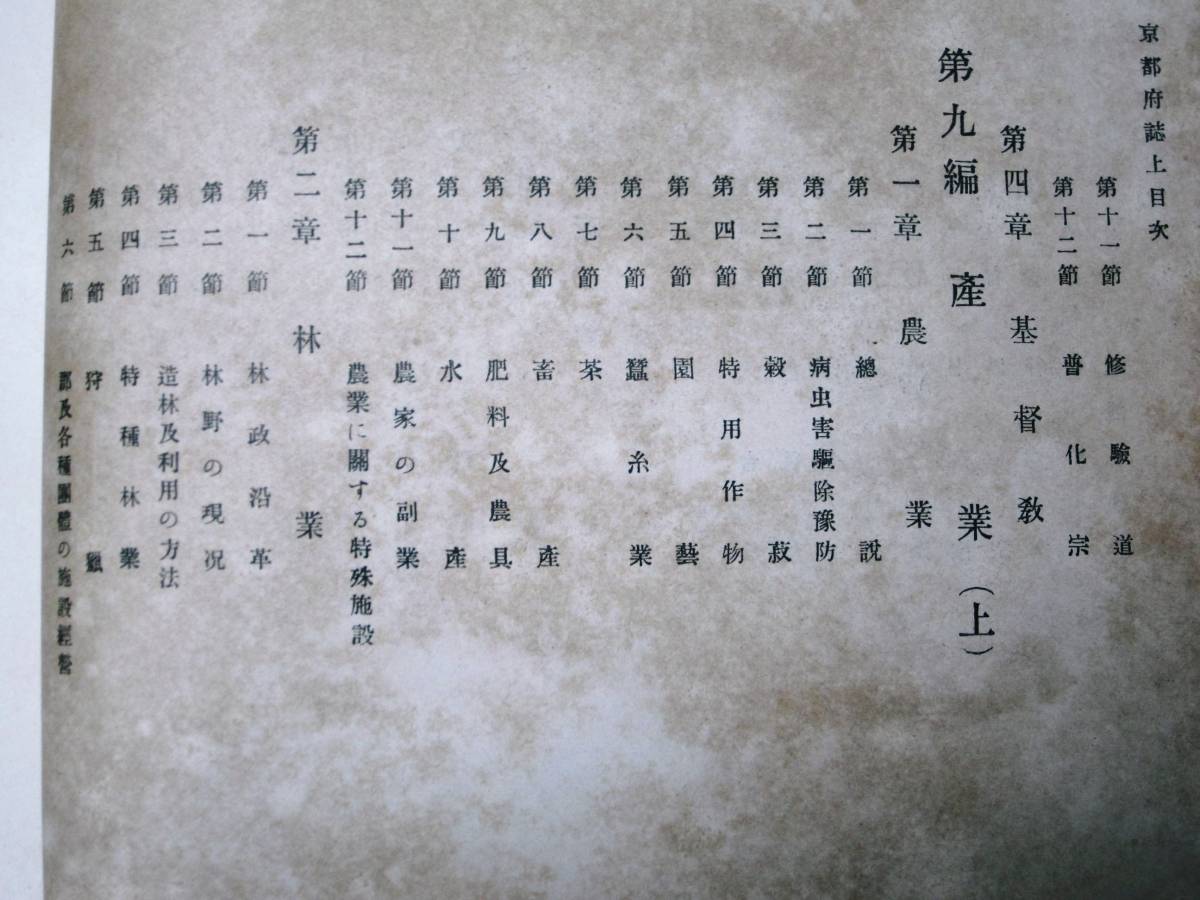 京都府誌上目次
第十一節 修驗道
第十二節 普化宗
第四章 基督敎
第九編 產業(上)
第一章 農業
第一節 總說
第二節 病虫害驅除豫防
第三節 穀菽
第四節 特用作物
第五節 園藝
第六節 蠶糸業
第七節 茶
第八節 畜產
第九節 肥料及農具
第十節 水產
第十一節 農家の副業
第十二節 農業に關する特殊施設
第二章 林業
第一節 林政沿革
第二節 林野の現況
第三節 造林及利用の方法
第四節 特種林業
第五節 狩獵
第六節 郡及各種團體の施設經營